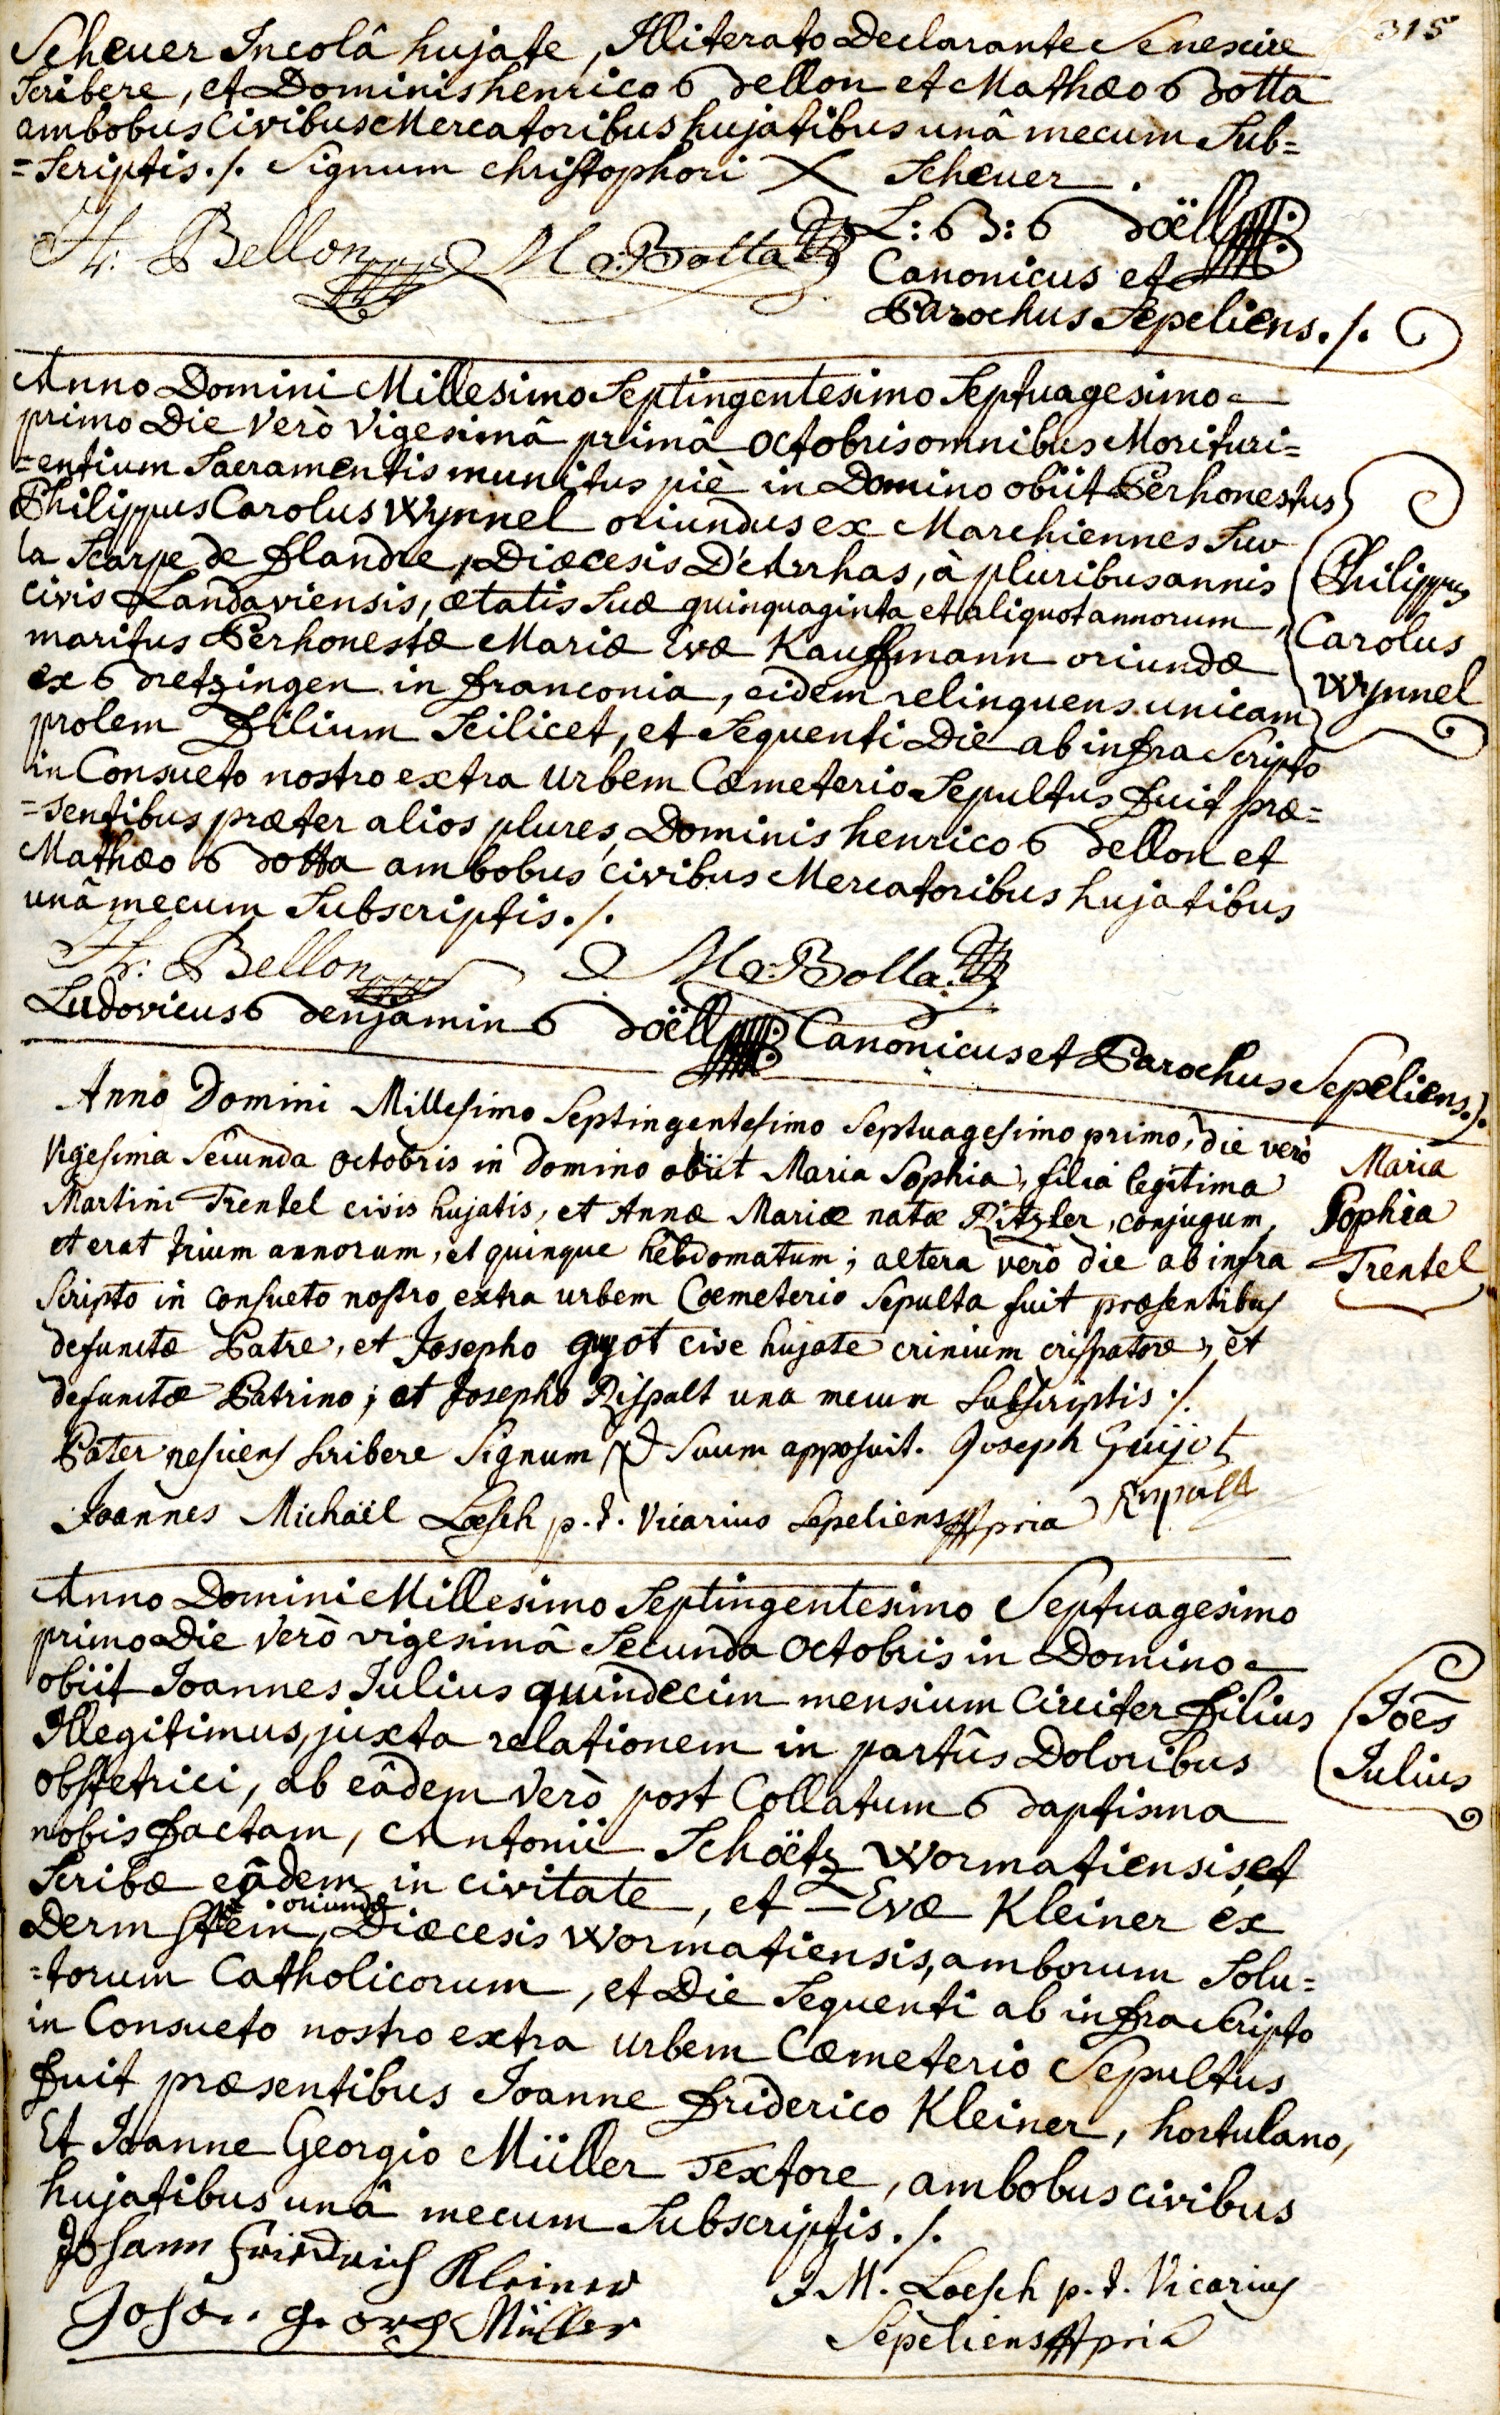 315
Scheuer Incolâ hujate, Illiterato Declarante se nescire
scribere, et Dominis henrico Bellon et Mathæo Botta
ambobus Civibus Mercatoribus hujatibus unâ mecum Sub=
=scriptis ./. Signum christophori X Scheuer.
H: Bellon M: Botta L: B: Boëll
Canonicus et
Parochus Sepeliens ./.
Anno Domini Millesimo Septingentesimo Septuagesimo
primo Die Verò Vigesimâ primâ octobris omnibus Morituri=
=entium Sacramentis munitus piè in Domino obiit Perhonestus
Philippus Carolus Wynnel oriundus ex Marchiennes Suv
la Scarpe de flandre, Diœcesis D'Arrhas, à pluribus annis
civis Landaviensis, ætatis suæ quinquaginta et aliquot annorum,
maritus Perhonestæ Mariæ Evæ Kauffmann oriundæ
ex Bretzingen in franconia, eidem relinquens unicam
prolem filium Scilicet, et Sequenti Die ab infra Scripto
in Consueto nostro extra urbem Cœmeterio Sepultus fuit præ=
=sentibus præter alios plures, Dominis henrico Bellon et
Mathæo Botta ambobus civibus Mercatoribus hujatibus
unâ mecum Subscriptis ./.
Philippus
Carolus
Wynnel
H: Bellon M: Botta
Ludovicus Benjamin Boëll Canonicus et Parochus Sepeliens ./.
Anno Domini Millesimo Septingentesimo Septuagesimo primo, die verò
Vigesima Secunda octobris in Domino obiit Maria Sophia, filia legitima
Martini Trentel civis hujatis, et Annæ Mariæ natæ Ritzler, conjugum,
et erat trium annorum, et quinque hebdomatum; altera verò die ab infra
Scripto in consueto nostro extra urbem Cœmeterio Sepulta fuit præsentibus
defunctæ Patre, et Josepho guyot cive hujate crinium crispatore, et
defunctæ Patrino; et Josepho Rispalt una mecum Subscriptis ./.
Pater nesciens scribere Signum suum apposuit. Joseph Guijot
Joannes Michaël Lœsch p.t. Vicarius Sepeliens mpria Rispalt
Maria
Sophia
Trentel
Anno Domini Millesimo Septingentesimo Septuagesimo
primo Die Verò vigesimâ Secunda Octobris in Domino
obiit Joannes Julius quindecim mensium Circiter filius
Illegitimus, juxta relationem in partûs Doloribus
obstetrici, ab eâdem Verò post Collatum Baptisma
nobis factam, Antonii Schöetz Wormatiensis et
Scribæ eâdem in civitate, et Evæ Kleiner ex
Dermstein oriundæ, Diœcesis Wormatiensis, amborum Solu=
=torum Catholicorum, et Die Sequenti ab infra Scripto
in Consueto nostro extra urbem Cœmeterio Sepultus
fuit præsentibus Joanne friderico Kleiner, hortulano,
Et Joanne Georgio Müller Textore, ambobus civibus
hujatibus unâ mecum Subscriptis ./.
Joēs
Julius
Johann Friedrich Kleiner
Johan georg Müller
J M. Loesch p.t. Vicarius
Sepeliens mpria